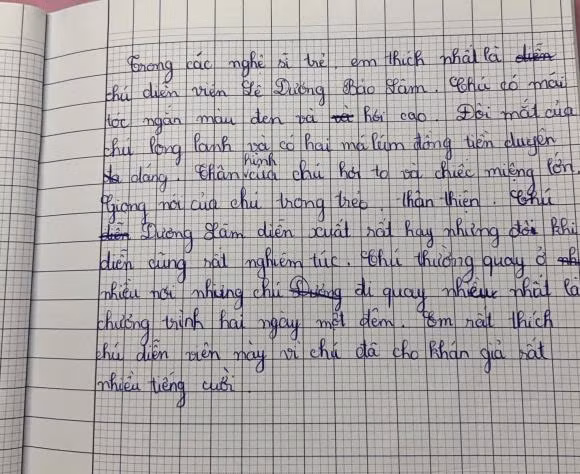 Trong các nghệ sĩ trẻ, em thích nhất là diễn
chú diễn viên Lê Dương Bảo Lâm. Chú có mái
tóc ngắn màu đen và hơi cao. Đôi mắt của
chú long lanh và có hai má lúm đồng tiền duyên
dáng. Thân hình của chú hơi to và chiếc miệng lớn.
Giọng nói của chú trong trẻo, thân thiện. Chú
diễn Dương Lâm diễn xuất rất hay nhưng đôi khi
diễn cũng rất nghiêm túc. Chú thường quay ở nh
nhiều nơi nhưng chú Dương đi quay nhiều nhất là
chương trình hai ngày một đêm. Em rất thích
chú diễn viên này vì chú đã cho khán giả rất
nhiều tiếng cười.